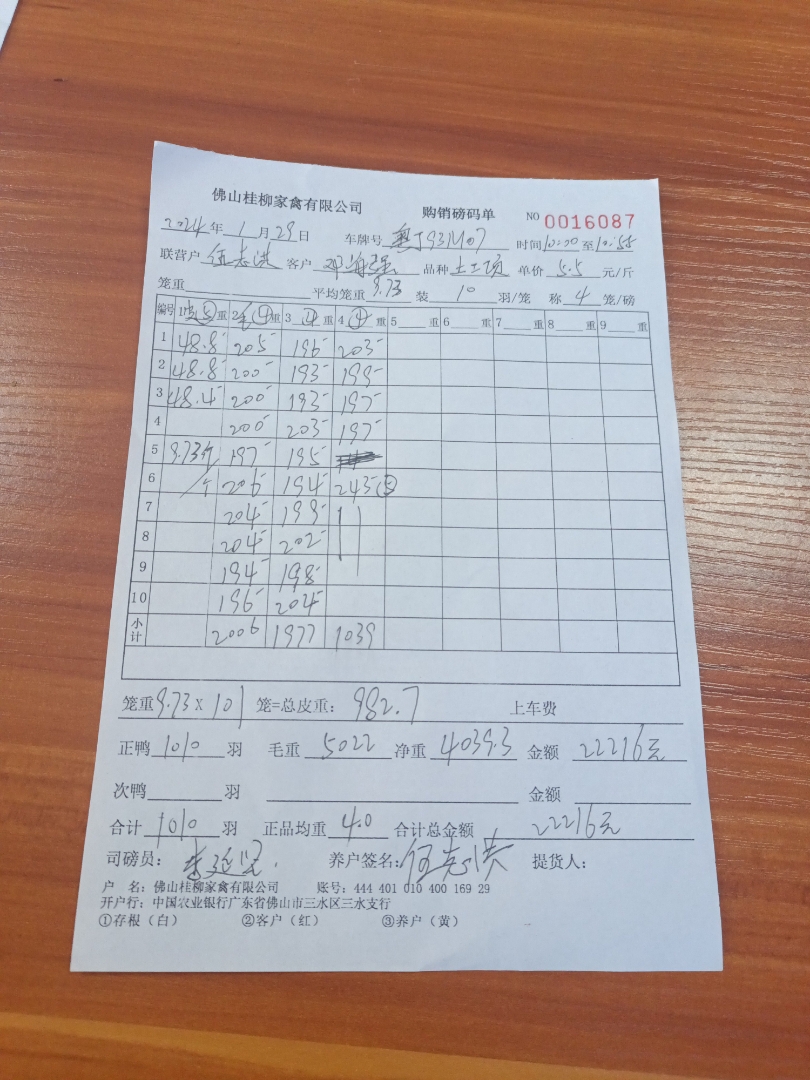 佛山桂柳家禽有限公司 购销磅码单 NO 0016087
2024年1月29日 车牌号 粤J93M07 时间10:00至10:55
联营户 伍志洪 客户 邓海强 品种 土二项 单价 5.5 元/斤
笼重 平均笼重 9.73 装 10 羽/笼 称 4 笼/磅
编号 1皮⑤重 2毛④重 3 ④ 重 4 ④ 重 5 重 6 重 7 重 8 重 9 重
1 48.8 205 196 203
2 48.8 200 193 199
3 48.4 200 193 197
4 200 203 197
5 9.73斤 197 195
6 /个 206 194 243⑤
7 204 199
8 204 202
9 194 198
10 196 204
小计 2006 1977 1039
笼重 9.73 X 101 笼=总皮重: 982.7 上车费
正鸭 1010 羽 毛重 5022 净重 4039.3 金额 22216元
次鸭 羽 金额
合计 1010 羽 正品均重 4.0 合计总金额 22216元
司磅员: 养户签名: 伍志洪 提货人:
户 名: 佛山桂柳家禽有限公司 账号: 444 401 010 400 169 29
开户行: 中国农业银行广东省佛山市三水区三水支行
①存根(白) ②客户(红) ③养户(黄)